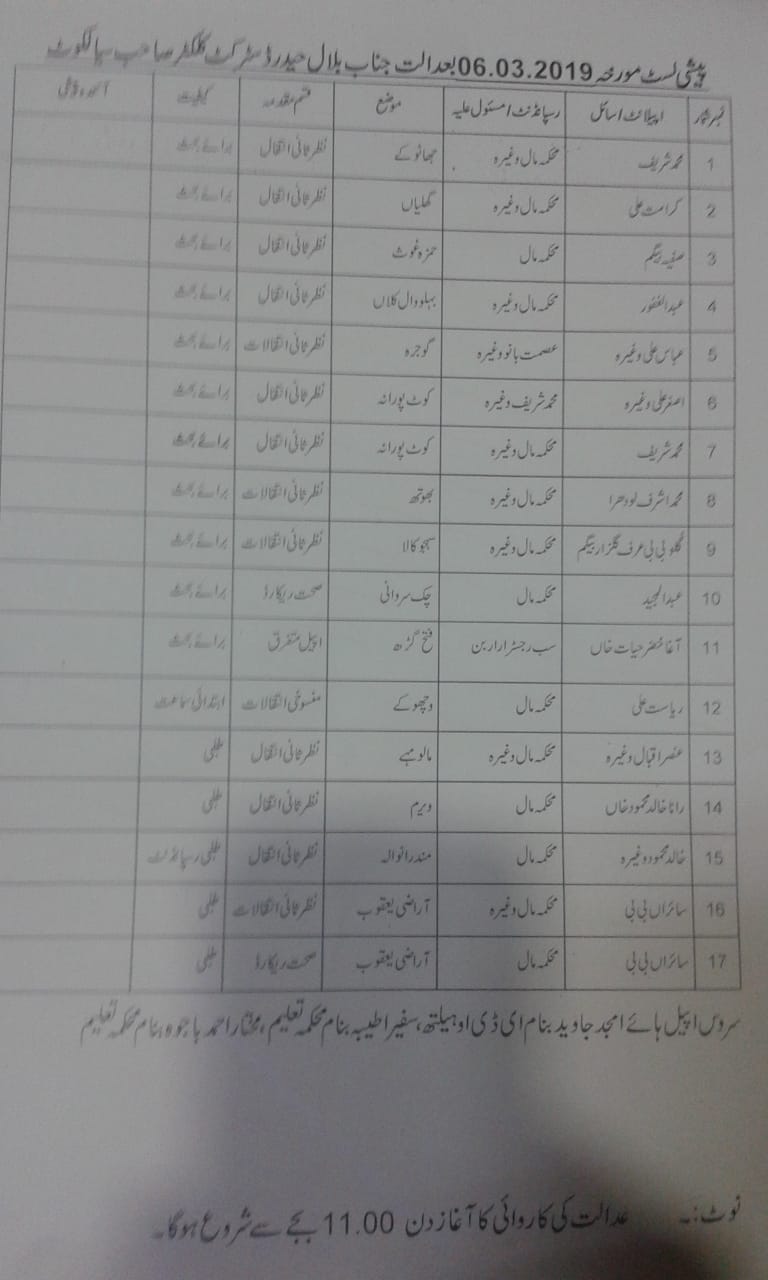 پیشی لسٹ مورخہ 06.03.2019 بعدالت جناب بلال حیدر ڈسٹرکٹ کلکٹر صاحب سیالکوٹ
نمبر شمار اپیلانٹ / سائل رسپانڈنٹ / مسئول علیہ موضع قسم مقدمہ کیفیت آئندہ پیشی
1 محمد شریف محکمہ مال وغیرہ جھانوکے نظر ثانی انتقال برائے بحث
2 کرامت علی محکمہ مال وغیرہ گھلیاں نظر ثانی انتقال برائے بحث
3 صفیہ بیگم محکمہ مال حمزہ غوث نظر ثانی انتقال برائے بحث
4 عبدالغفور محکمہ مال وغیرہ بہلووال کلاں نظر ثانی انتقال برائے بحث
5 عباس علی وغیرہ عصمت بانو وغیرہ گوجرہ نظر ثانی انتقالات برائے بحث
6 اصغر علی وغیرہ محمد شریف وغیرہ کوٹ پورانہ نظر ثانی انتقال برائے بحث
7 محمد شریف محکمہ مال وغیرہ کوٹ پورانہ نظر ثانی انتقال برائے بحث
8 محمد اشرف لودھرا محکمہ مال وغیرہ بھوتھ نظر ثانی انتقالات برائے بحث
9 گلو بی بی عرف گلزار بیگم محکمہ مال وغیرہ سجوکالا نظر ثانی انتقالات برائے بحث
10 عبدالمجید محکمہ مال چک سروانی صحت ریکارڈ برائے بحث
11 آغا خضر حیات خاں سب رجسٹرار اربن فتح گڑھ اپیل متفرق برائے بحث
12 ریاست علی محکمہ مال وچھوکے منسوخی انتقالات ابتدائی سماعت
13 عنصر اقبال وغیرہ محکمہ مال وغیرہ مالومہے نظر ثانی انتقال طلبی
14 رانا خالد محمود خاں محکمہ مال ویرم نظر ثانی انتقال طلبی
15 خالد محمود وغیرہ محکمہ مال مندرانوالہ نظر ثانی انتقال طلبی رسپانڈنٹ
16 سائراں بی بی محکمہ مال وغیرہ آراضی یعقوب نظر ثانی انتقالات طلبی
17 سائراں بی بی محکمہ مال آراضی یعقوب صحت ریکارڈ طلبی
سروس اپیل ہائے امجد جاوید بنام ای ڈی او ہیلتھ، سفیرا طیبہ بنام محکمہ تعلیم، مختار احمد باجوہ بنام محکمہ تعلیم
نوٹ:۔ عدالت کی کاروائی کا آغاز دن 11.00 بجے سے شروع ہوگا۔